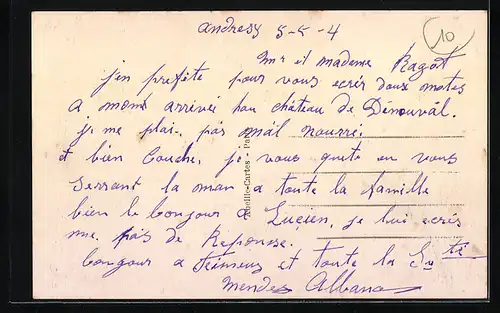 andresy 5-5-4
10
Mr et madame Ragot
j'en profète pour vous ecrir doux motes
a mons arrivée hau château de Dénouval.
je me plai. pas mâl nourri.
et bien Couche. je vous quite en vous
Serrant la man a toute la famille
bien le bongour a Lucien. je lui ecris
me pas de Reponse.
bongour a et toute la
Mendes Albano
Abeille-Cartes - Pa